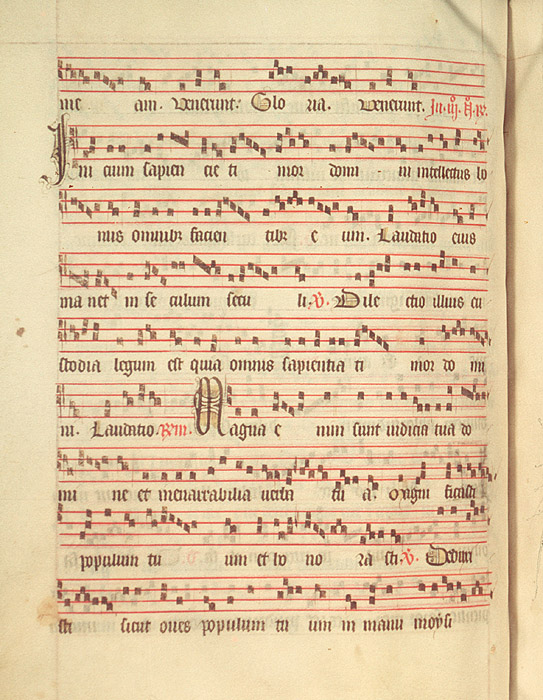 me am. Venerunt. Glo ria. Venerunt. In. iij. N. R.
Ini cium sapien cie ti mor domi ni intellectus bo
nus omnibus facien tibus e um. Laudatio eius
ma net in se culum secu li. V. Dile ctio illius cu
stodia legum est quia omnis sapientia ti mor do mi
ni. Laudatio. Magna e nim sunt iudicia tua do
mi ne et inenarrabilia verba tu a. Magni ficasti
populum tu um et ho no ra sti. V. Deduxi
sti sicut oves populum tu um in manu moysi